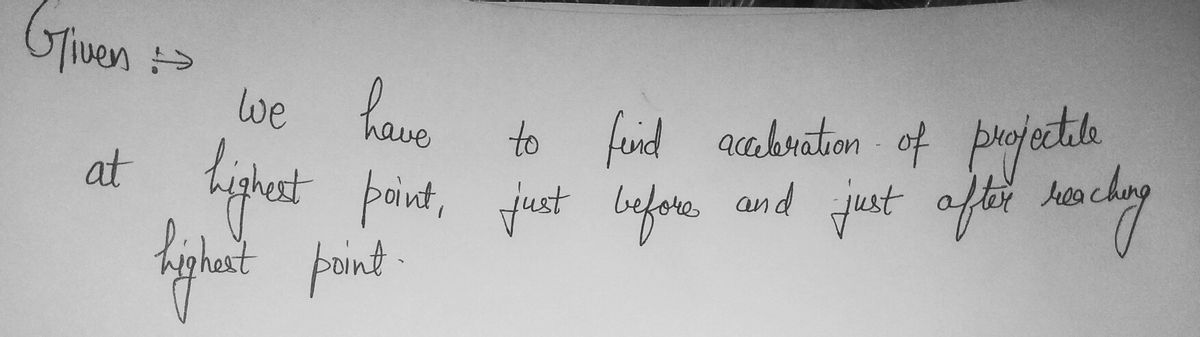 Given :→
we have to find acceleration of projectile
at highest point, just before and just after reaching
highest point.